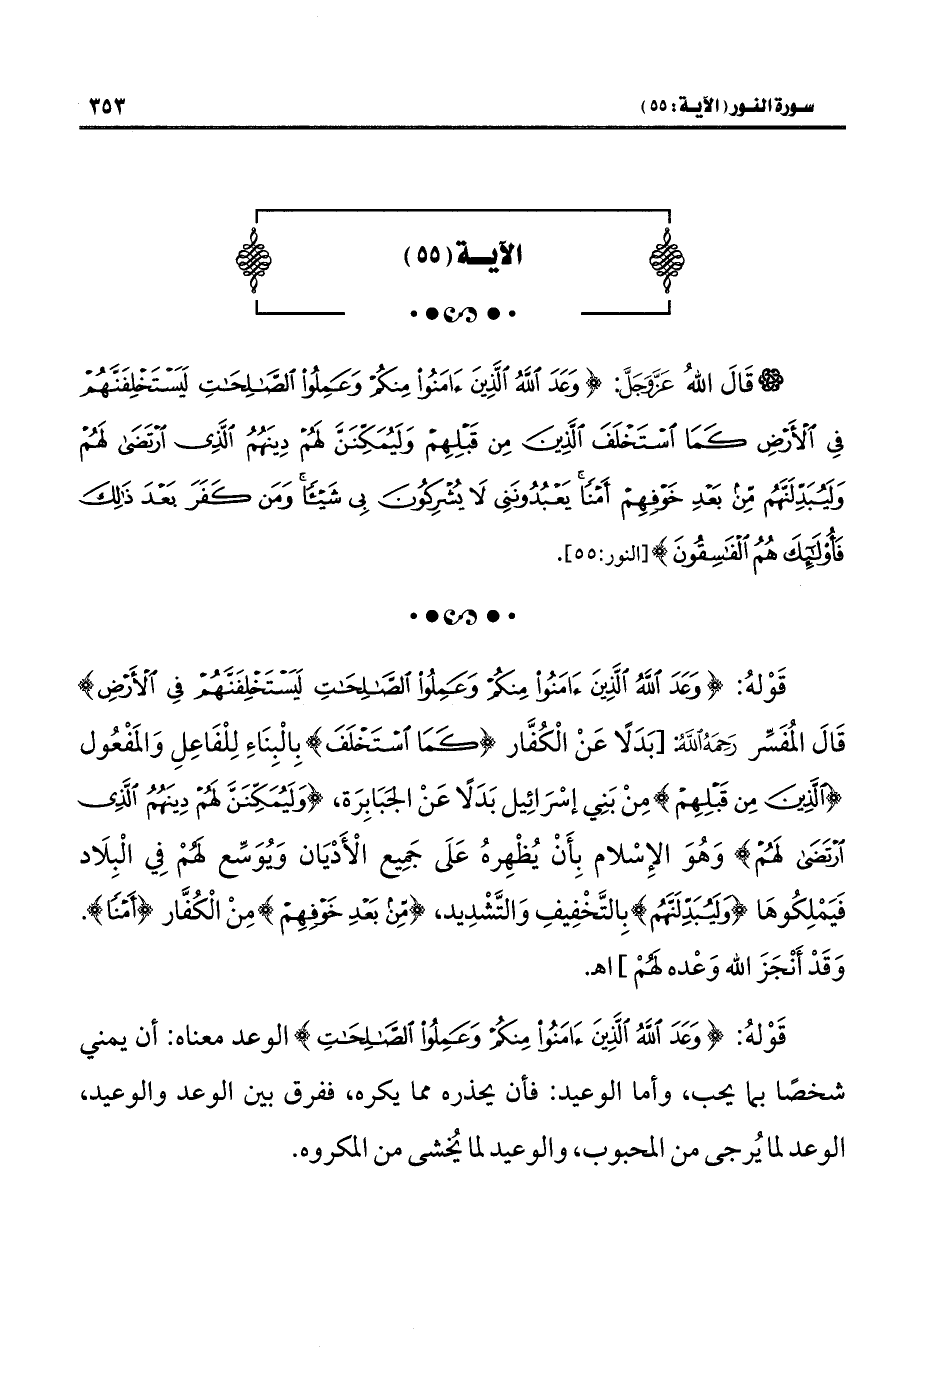 سورة النور (الآية: ٥٥) ٣٥٣
الآيـــة (٥٥)
قَالَ اللهُ عَزَّوَجَلَّ: ﴿وَعَدَ ٱللَّهُ ٱلَّذِينَ ءَامَنُوا۟ مِنكُمْ وَعَمِلُوا۟ ٱلصَّـٰلِحَـٰتِ لَيَسْتَخْلِفَنَّهُمْ
فِى ٱلْأَرْضِ كَمَا ٱسْتَخْلَفَ ٱلَّذِينَ مِن قَبْلِهِمْ وَلَيُمَكِّنَنَّ لَهُمْ دِينَهُمُ ٱلَّذِى ٱرْتَضَىٰ لَهُمْ
وَلَيُبَدِّلَنَّهُم مِّنۢ بَعْدِ خَوْفِهِمْ أَمْنًا ۚ يَعْبُدُونَنِى لَا يُشْرِكُونَ بِى شَيْـًٔا ۚ وَمَن كَفَرَ بَعْدَ ذَٰلِكَ
فَأُو۟لَـٰٓئِكَ هُمُ ٱلْفَـٰسِقُونَ﴾ [النور:٥٥].
قَوْلهُ: ﴿وَعَدَ ٱللَّهُ ٱلَّذِينَ ءَامَنُوا۟ مِنكُمْ وَعَمِلُوا۟ ٱلصَّـٰلِحَـٰتِ لَيَسْتَخْلِفَنَّهُمْ فِى ٱلْأَرْضِ﴾
قَالَ المُفَسِّر رَحِمَهُ اللَّهُ: [بَدَلًا عَنْ الْكُفَّار ﴿كَمَا ٱسْتَخْلَفَ﴾ بِالْبِنَاءِ لِلْفَاعِلِ وَالمَفْعُول
﴿ٱلَّذِينَ مِن قَبْلِهِمْ﴾ مِنْ بَنِي إسْرَائِيل بَدَلًا عَنْ الجَبَابِرَة، ﴿وَلَيُمَكِّنَنَّ لَهُمْ دِينَهُمُ ٱلَّذِى
ٱرْتَضَىٰ لَهُمْ﴾ وَهُوَ الإِسْلام بِأَنْ يُظْهِرهُ عَلَى جَمِيع الْأَدْيَان وَيُوَسِّع لَهُمْ فِي الْبِلَاد
فَيَمْلِكُوهَا ﴿وَلَيُبَدِّلَنَّهُم﴾ بِالتَّخْفِيفِ وَالتَّشْدِيد، ﴿مِّنۢ بَعْدِ خَوْفِهِمْ﴾ مِنْ الْكُفَّار ﴿أَمْنًا﴾.
وَقَدْ أَنْجَزَ الله وَعْده لَهُمْ] اهـ.
قَوْلهُ: ﴿وَعَدَ ٱللَّهُ ٱلَّذِينَ ءَامَنُوا۟ مِنكُمْ وَعَمِلُوا۟ ٱلصَّـٰلِحَـٰتِ﴾ الوعد معناه: أن يمني
شخصًا بما يحب، وأما الوعيد: فأن يحذره مما يكره، ففرق بين الوعد والوعيد،
الوعد لما يُرجى من المحبوب، والوعيد لما يُخشى من المكروه.